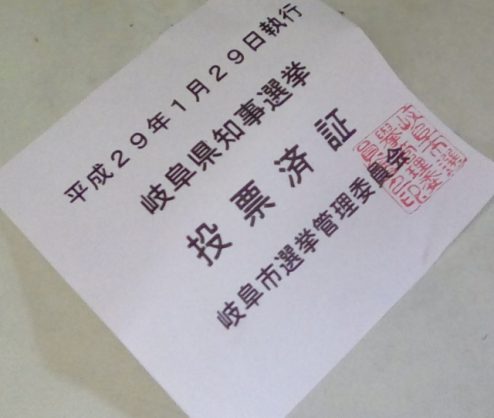 平成29年1月29日執行
岐阜県知事選挙
投票済証
岐阜市選挙管理委員会